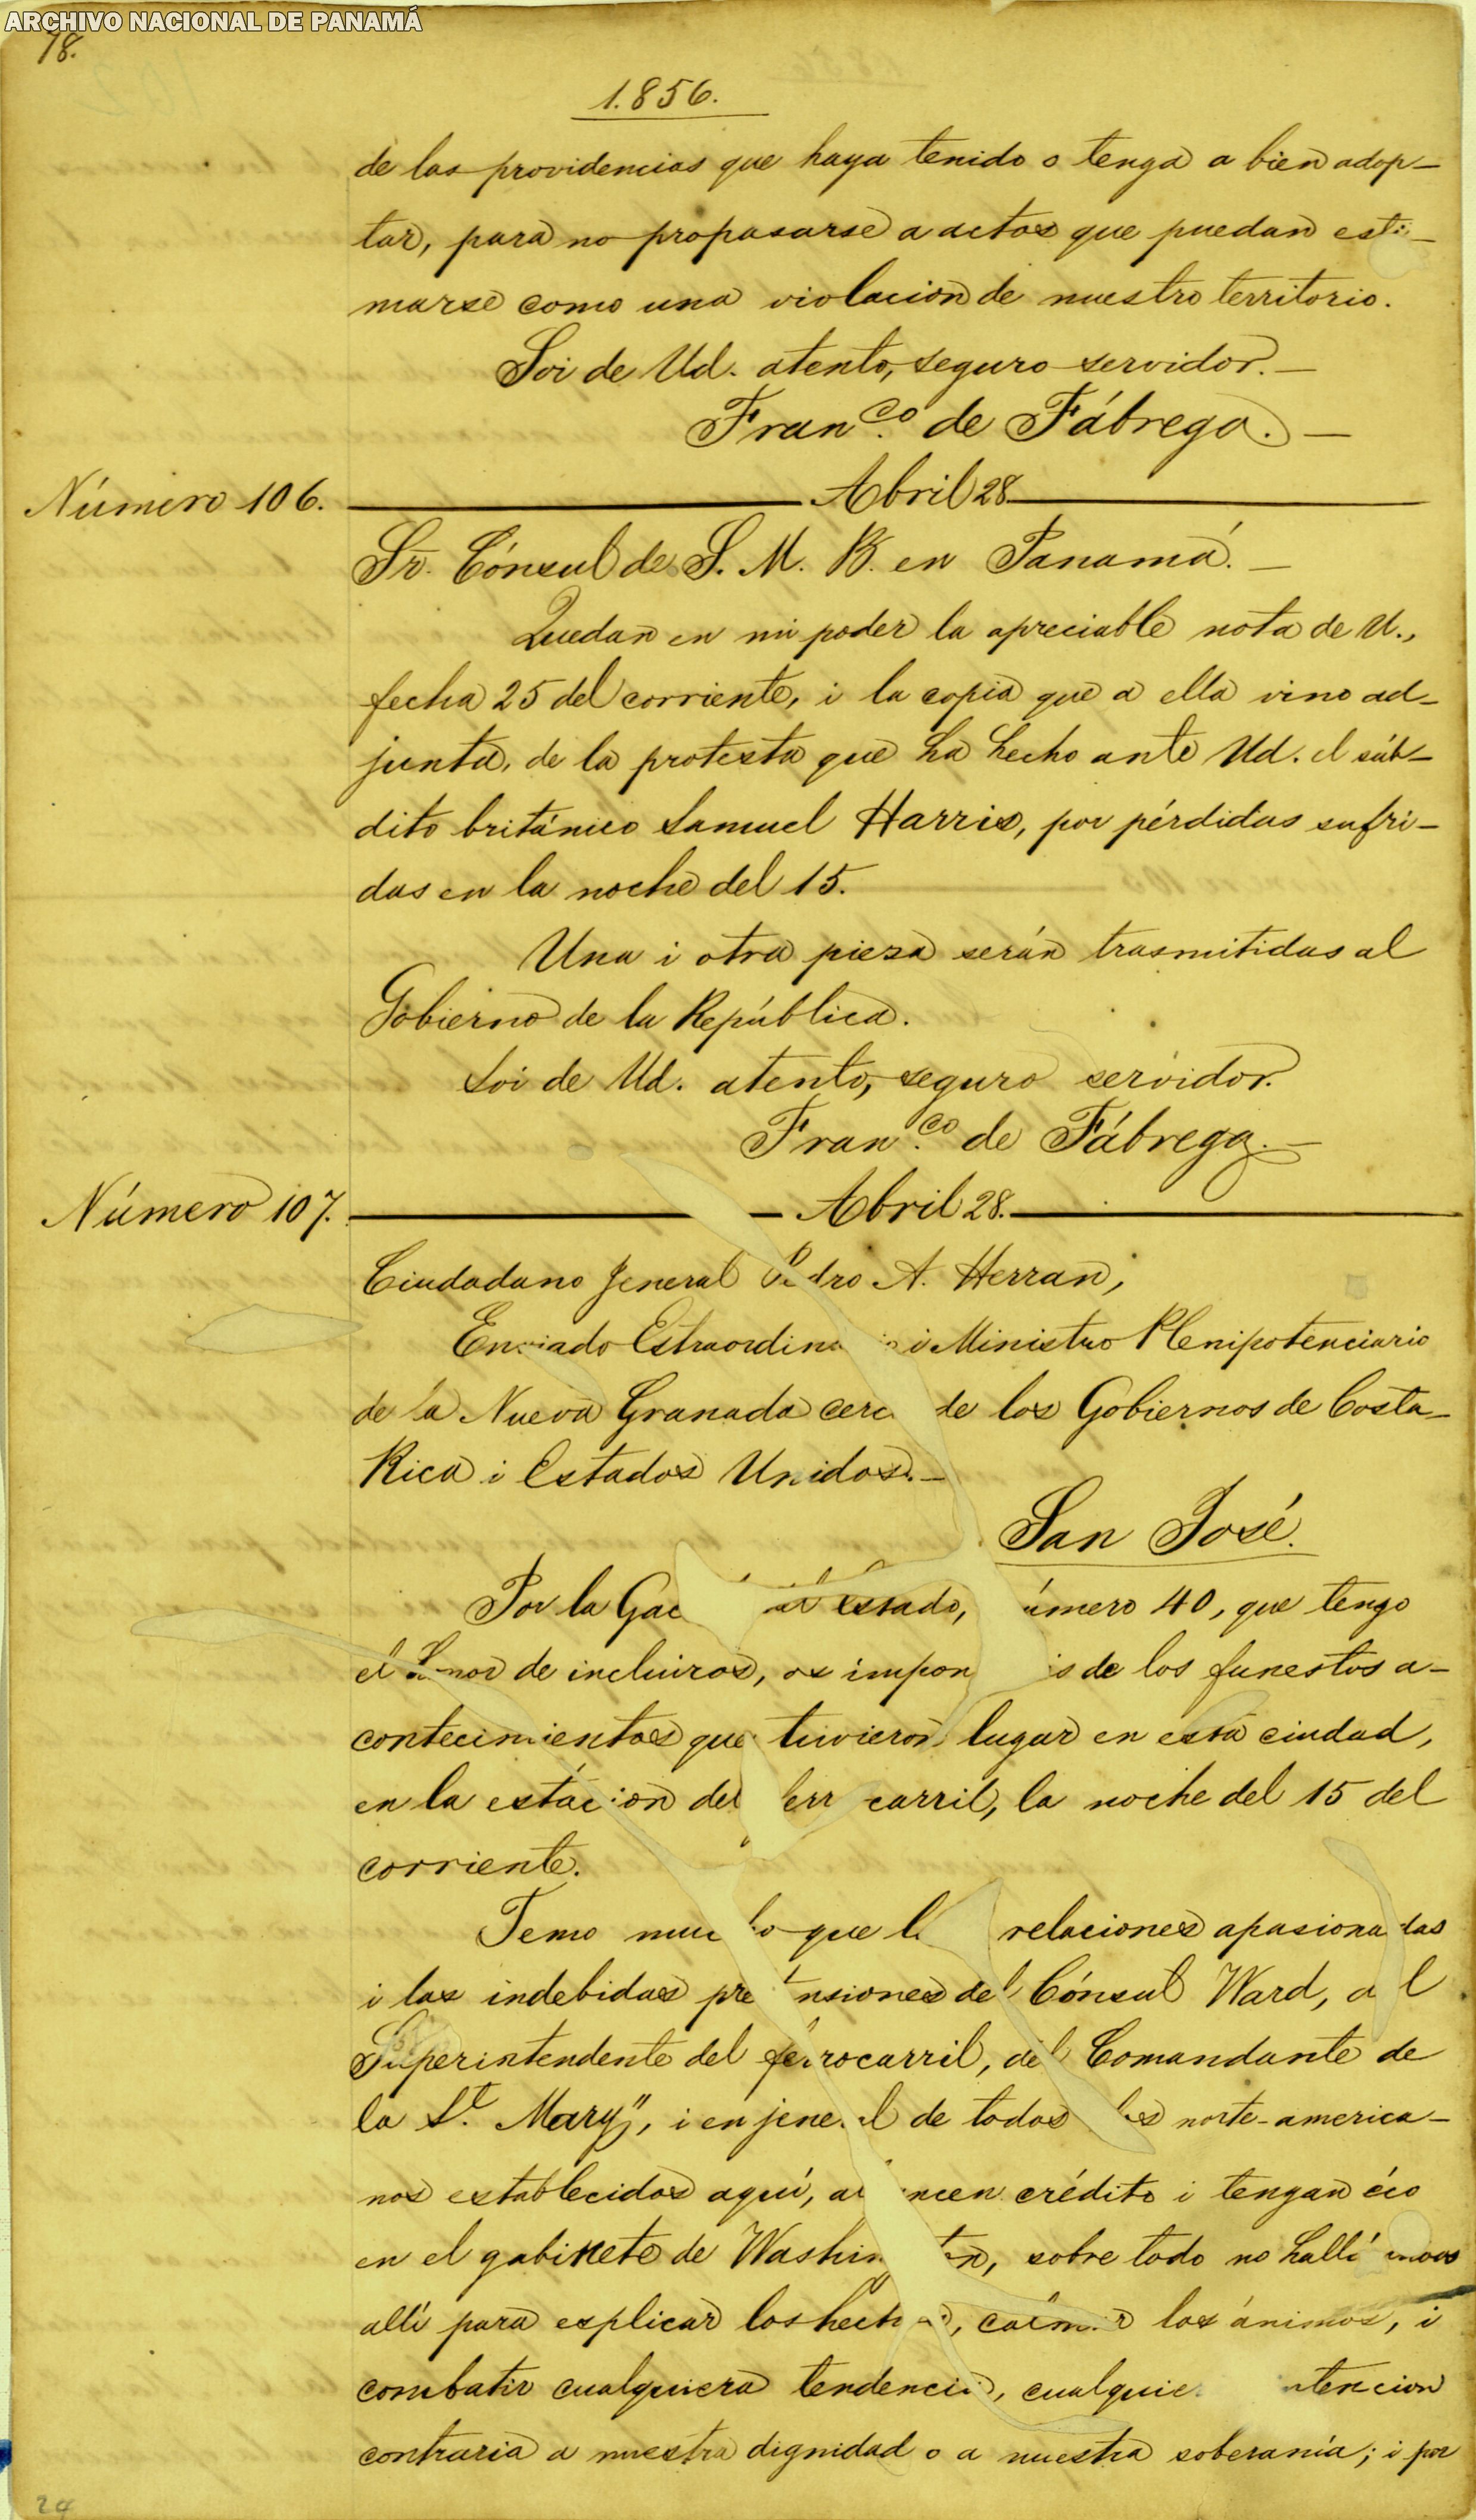 ARCHIVO NACIONAL DE PANAMÁ
78.
1.856.
de las providencias que haya tenido o tenga a bien adop-
tar, para no propasarse a actos que puedan esti-
marse como una violacion de nuestro territorio.
Soi de Ud. atento, seguro servidor. —
Fran.co de Fábrega. —
Número 106. Abril 28.
Sr. Cónsul de S. M. B. en Panamá. —
Quedan en mi poder la apreciable nota de U.,
fecha 25 del corriente, i la copia que a ella vino ad-
junta, de la protesta que ha hecho ante Ud. el súb-
dito británico Samuel Harris, por pérdidas sufri-
das en la noche del 15.
Una i otra pieza serán trasmitidas al
Gobierno de la República.
Soi de Ud. atento, seguro servidor.
Fran.co de Fábrega. —
Número 107. Abril 28.
Ciudadano Jeneral Pedro A. Herran,
Enviado Estraordina i Ministro Plenipotenciario
de la Nueva Granada cerc de los Gobiernos de Costa-
Rica i Estados Unidos. —
San José.
Por la Gac del Estado, úmero 40, que tengo
el honor de incluiros, os impon is de los funestos a-
contecimientos que tuvieron lugar en esta ciudad,
en la estacion del ferrocarril, la noche del 15 del
corriente.
Temo mucho que l relaciones apasionadas
i las indebidas pretensiones del Cónsul Ward, del
Superintendente del ferrocarril, del Comandante de
la St. Mary", i en jeneral de todos los norte-america-
nos establecidos aquí, alcancen crédito i tengan éco
en el gabinete de Washington, sobre todo no hallá ndoos
allí para esplicar los hechos, calmar los ánimos, i
combatir cualquiera tendencia, cualquie ntencion
contraria a nuestra dignidad o a nuestra soberanía; i por
24